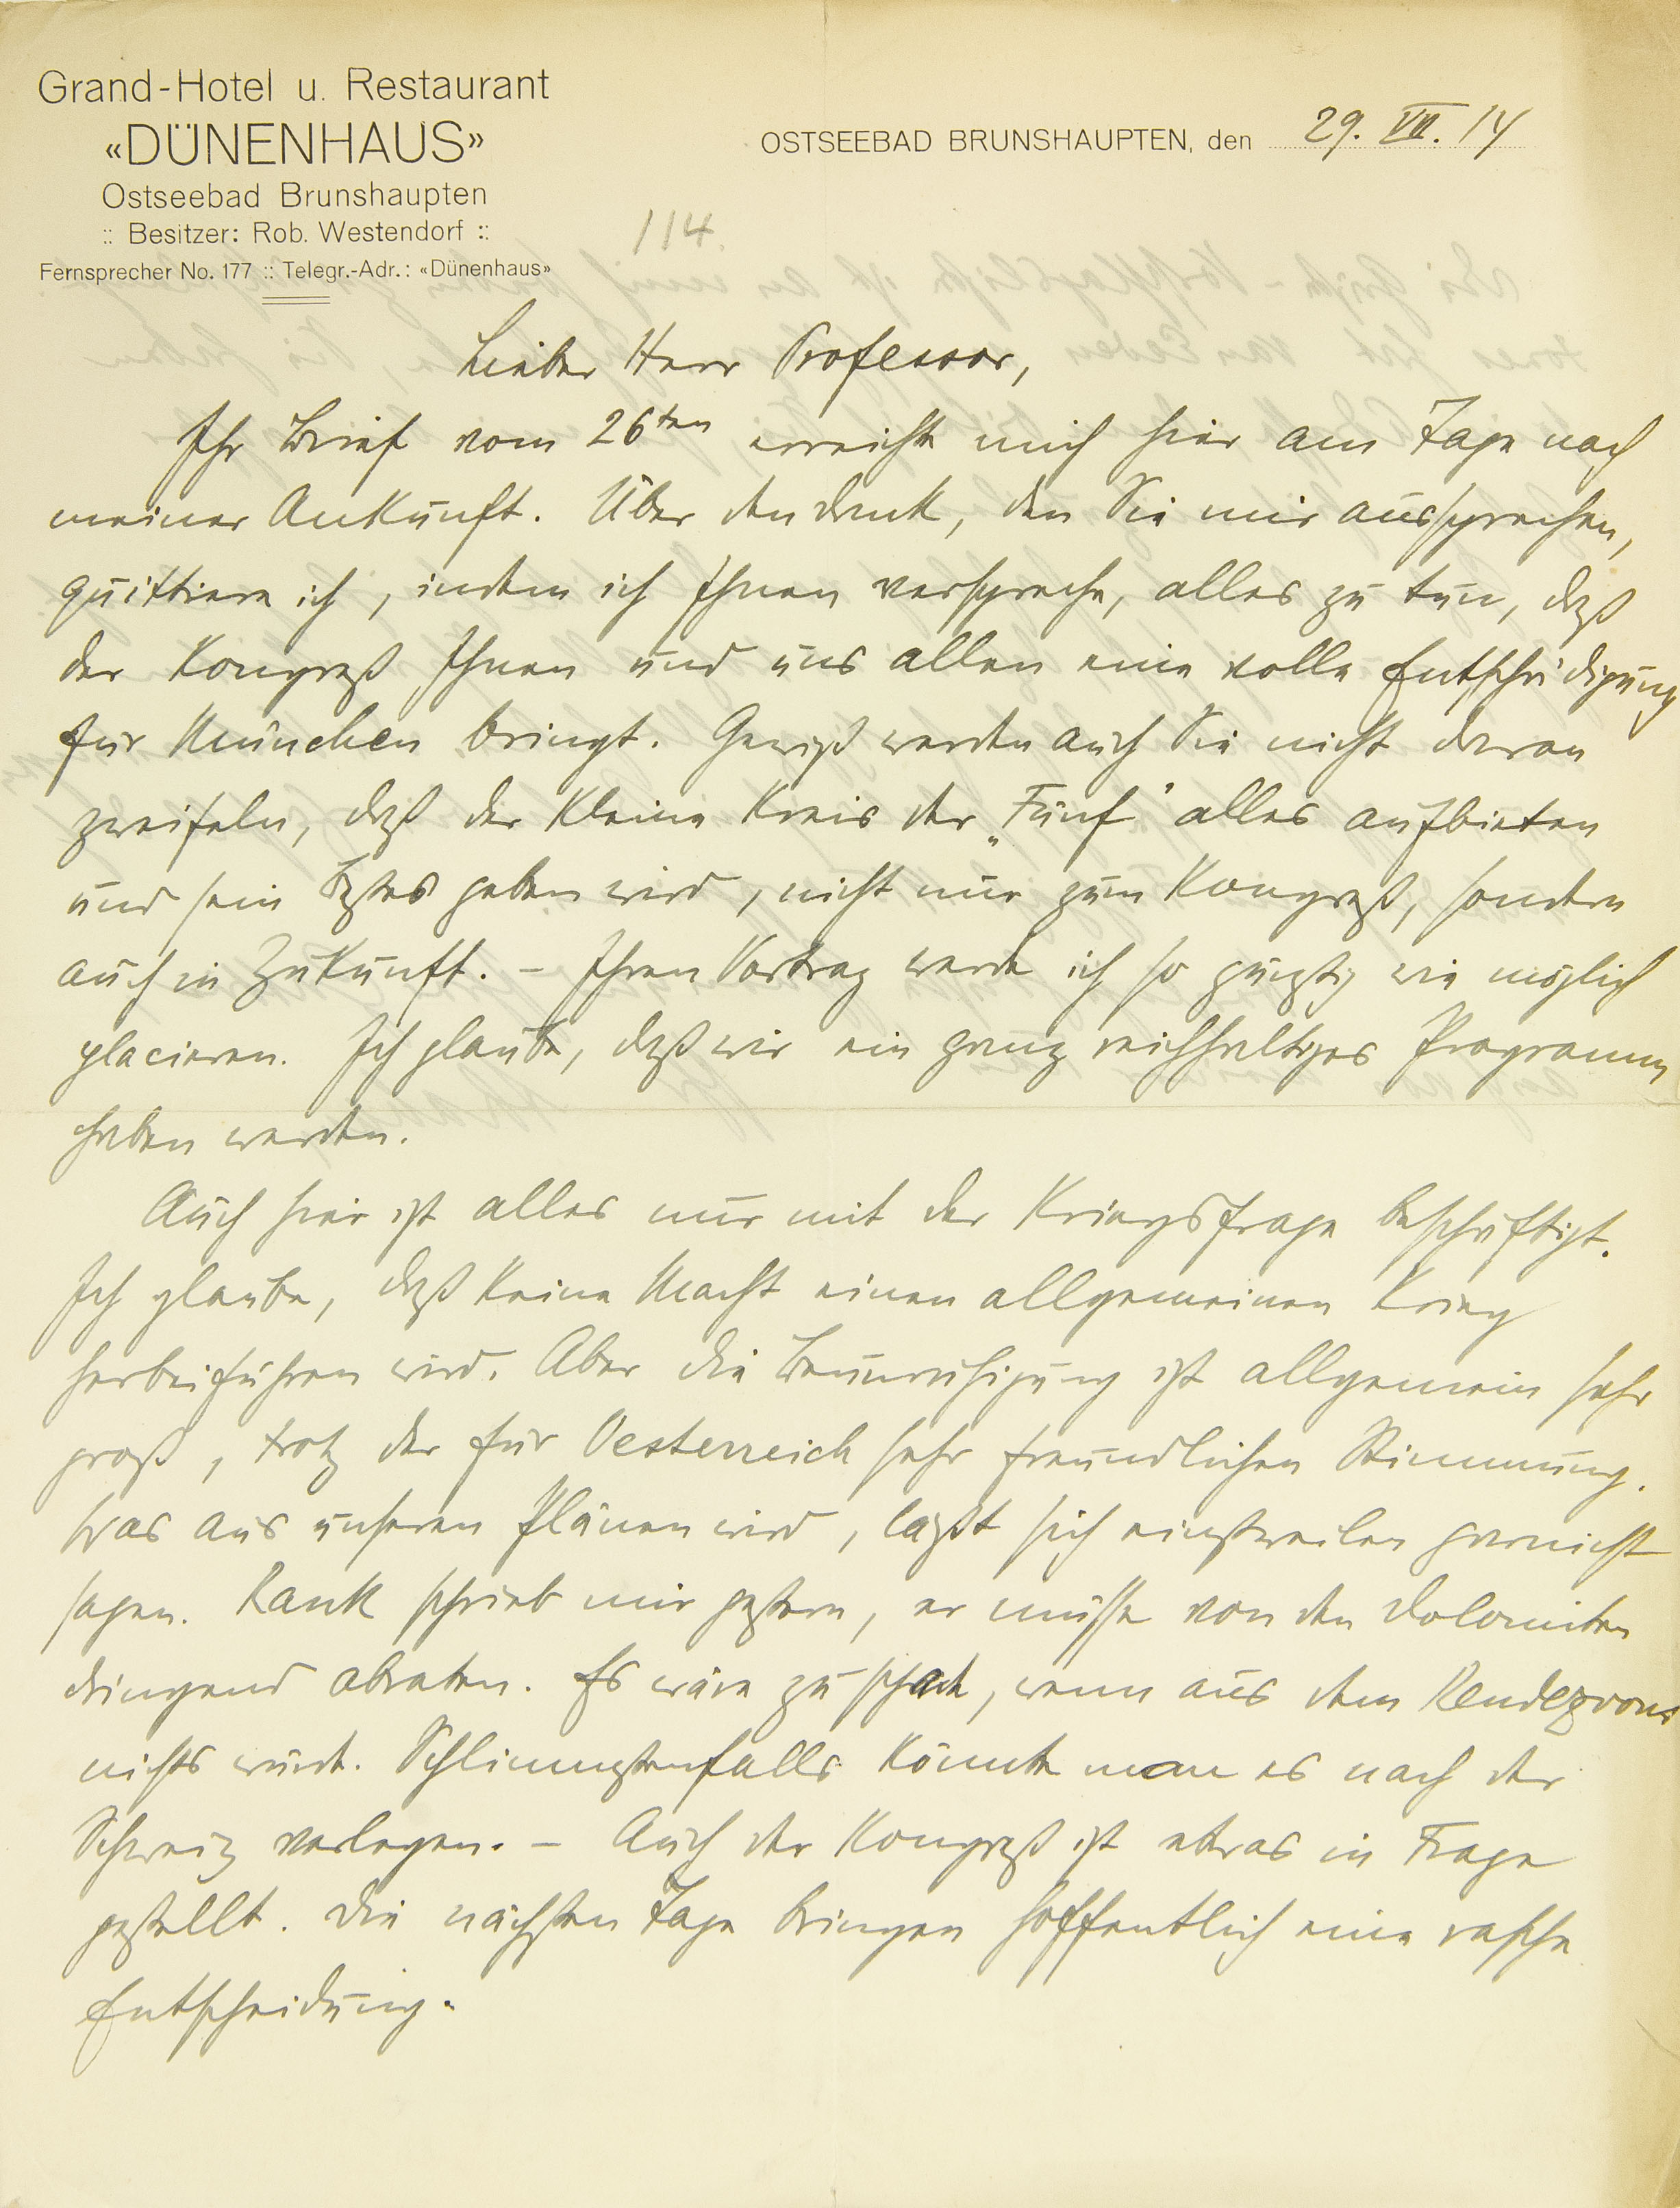 Grand-Hotel u. Restaurant
«DÜNENHAUS»
Ostseebad Brunshaupten
:: Besitzer: Rob. Westendorf ::
Fernsprecher No. 177 :: Telegr.-Adr.: «Dünenhaus»
OSTSEEBAD BRUNSHAUPTEN, den 29. VII. 14
114.
Lieber Herr Professor,
Ihr Brief vom 26ten erreichte mich hier am Tage nach
meiner Ankunft. Über den Dank, den Sie mir aussprechen,
quittiere ich, indem ich Ihnen verspreche, alles zu tun, daß
der Kongreß Ihnen und uns allen eine volle Entschädigung
für München bringt. Gewiß werden auch Sie nicht daran
zweifeln, daß der kleine Kreis der „Fünf" alles aufbieten
und sein Bestes geben wird, nicht nur zum Kongreß, sondern
auch in Zukunft. – Ihren Vortrag werde ich so günstig wie möglich
placieren. Ich glaube, daß wir ein ganz reichhaltiges Programm
haben werden.
Auch hier ist alles nur mit der Kriegsfrage beschäftigt.
Ich glaube, daß keine Macht einen allgemeinen Krieg
herbeiführen wird. Aber die Beunruhigung ist allgemein sehr
groß, trotz der für Oesterreich sehr freundlichen Stimmung.
Was aus unseren Plänen wird, läßt sich einstweilen garnicht
sagen. Rank schrieb mir gestern, er müsse von den Dolomiten
dringend abraten. Es wäre zu schade, wenn aus dem Rendezvous
nichts würde. Schlimmstenfalls könnte man es nach der
Schweiz verlegen. – Auch der Kongreß ist etwas in Frage
gestellt. Die nächsten Tage bringen hoffentlich eine rasche
Entscheidung.